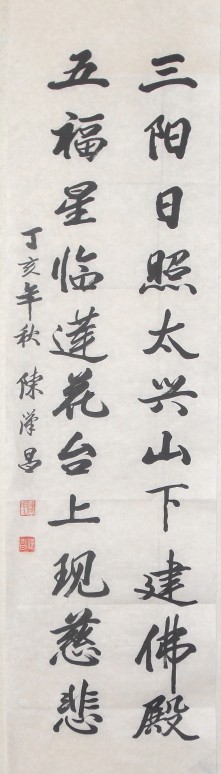 三阳日照太兴山下建佛殿
五福星临莲花台上现慈悲
丁亥年秋 陈汉昌